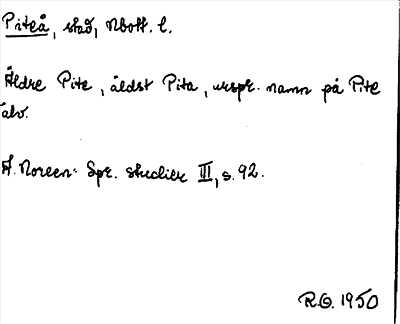 Piteå, stad, Nbott. l.
Äldre Pite, äldst Pita, urspr. namn på Pite
älv.
A. Noreen: Spr. studier III, s. 92.
R.O. 1950